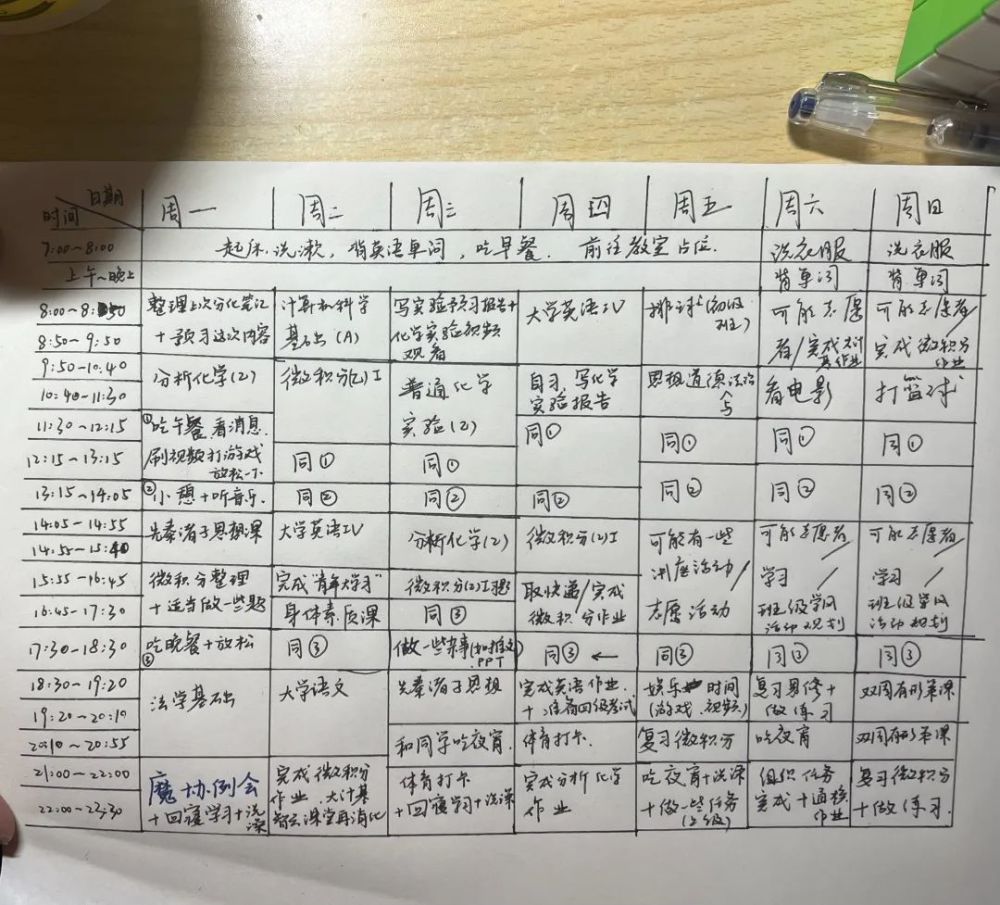 日期
时间
周一 周二 周三 周四 周五 周六 周日
7:00~8:00 起床.洗漱,背英语单词,吃早餐.前往教室占位. 洗衣服 洗衣服
上午~晚上 背单词 背单词
8:00~8:50 整理上次分化笔记 计算机科学 写实验预习报告+ 大学英语IV 排球(初级 可能志愿 可能志愿者/
8:50~9:50 +预习这次内容 基础(A) 化学实验视频 班) 者/完成大计 完成微积分
观看 基作业 作业
9:50-10:40 分析化学(2) 微积分(2)I 普通化学 自习,写化学 思想道德法治 看电影 打篮球
10:40-11:30 实验(2) 实验报告 与
11:30~12:15 ①吃午餐看消息 同① 同① 同① 同①
12:15~13:15 刷视频打游戏 同① 同①
放松一下
13:15~14:05 ②小憩+听音乐. 同② 同② 同② 同② 同② 同②
14:05-14:55 先秦诸子思想课 大学英语IV 分析化学(2) 微积分(2)I 可能有一些 可能志愿者/ 可能志愿者/
14:55-15:40 讲座活动/
15:55-16:45 微积分整理 完成"青年大学习" 微积分(2)I习题 取快递/完成 志愿活动 学习/ 学习/
16:45-17:30 +适当做一些题 身体素质课 同③ 微积分作业 班级学风 班级学风
活动规划 活动规划
17:30-18:30 吃晚餐+放松 同③ 做一些杂事(如推文 同③← 同③ 同③ 同③
③ .PPT
18:30-19:20 法学基础 大学语文 先秦诸子思想 完成英语作业. 娱乐时间 复习易修+ 双周有形策课
19:20~20:10 +准备四级考试 (游戏.视频) 做练习
20:10~20:55 和同学吃夜宵. 体育打卡. 复习微积分 吃夜宵 双周有形策课
21:00~22:00 魔协例会 完成微积分 体育打卡 完成分析化学 吃夜宵+洗澡 组织任务 复习微积分
22:00~23:30 +回寝学习+洗澡 作业.大计基 +回寝学习+洗澡 作业 +做一些任务 完成+通核 +做练习.
智云课堂再消化 (上级) 作业